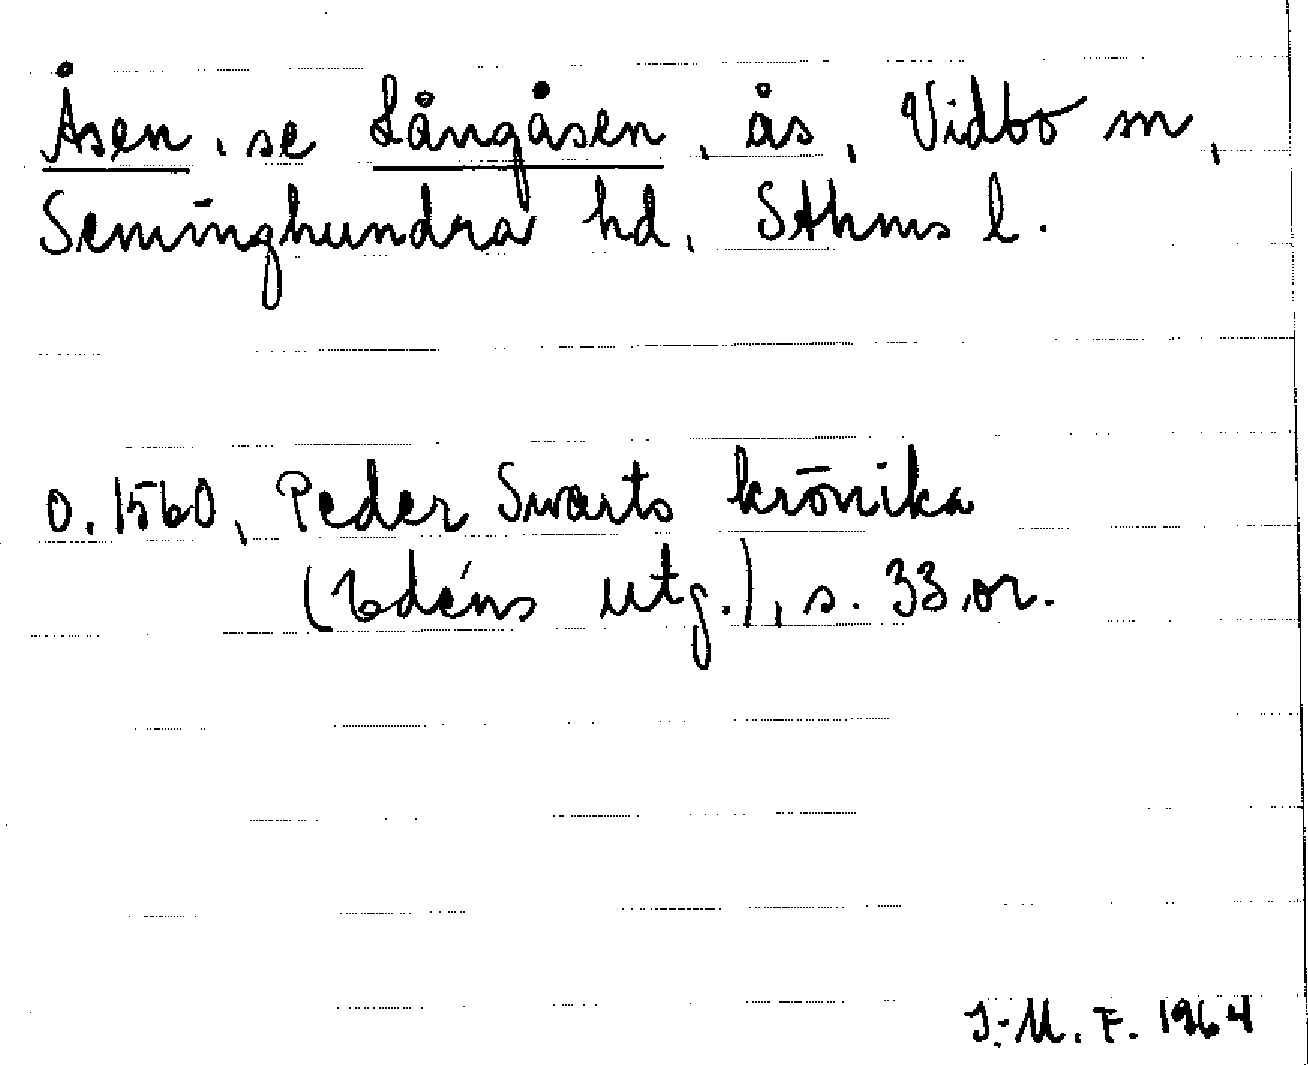 Åsen, se Långåsen, ås, Vidbo sn,
Seminghundra hd, Sthms l.
o. 1560, Peder Swarts krönika
(Edéns utg.), s. 33, or.
I-M. F. 1964